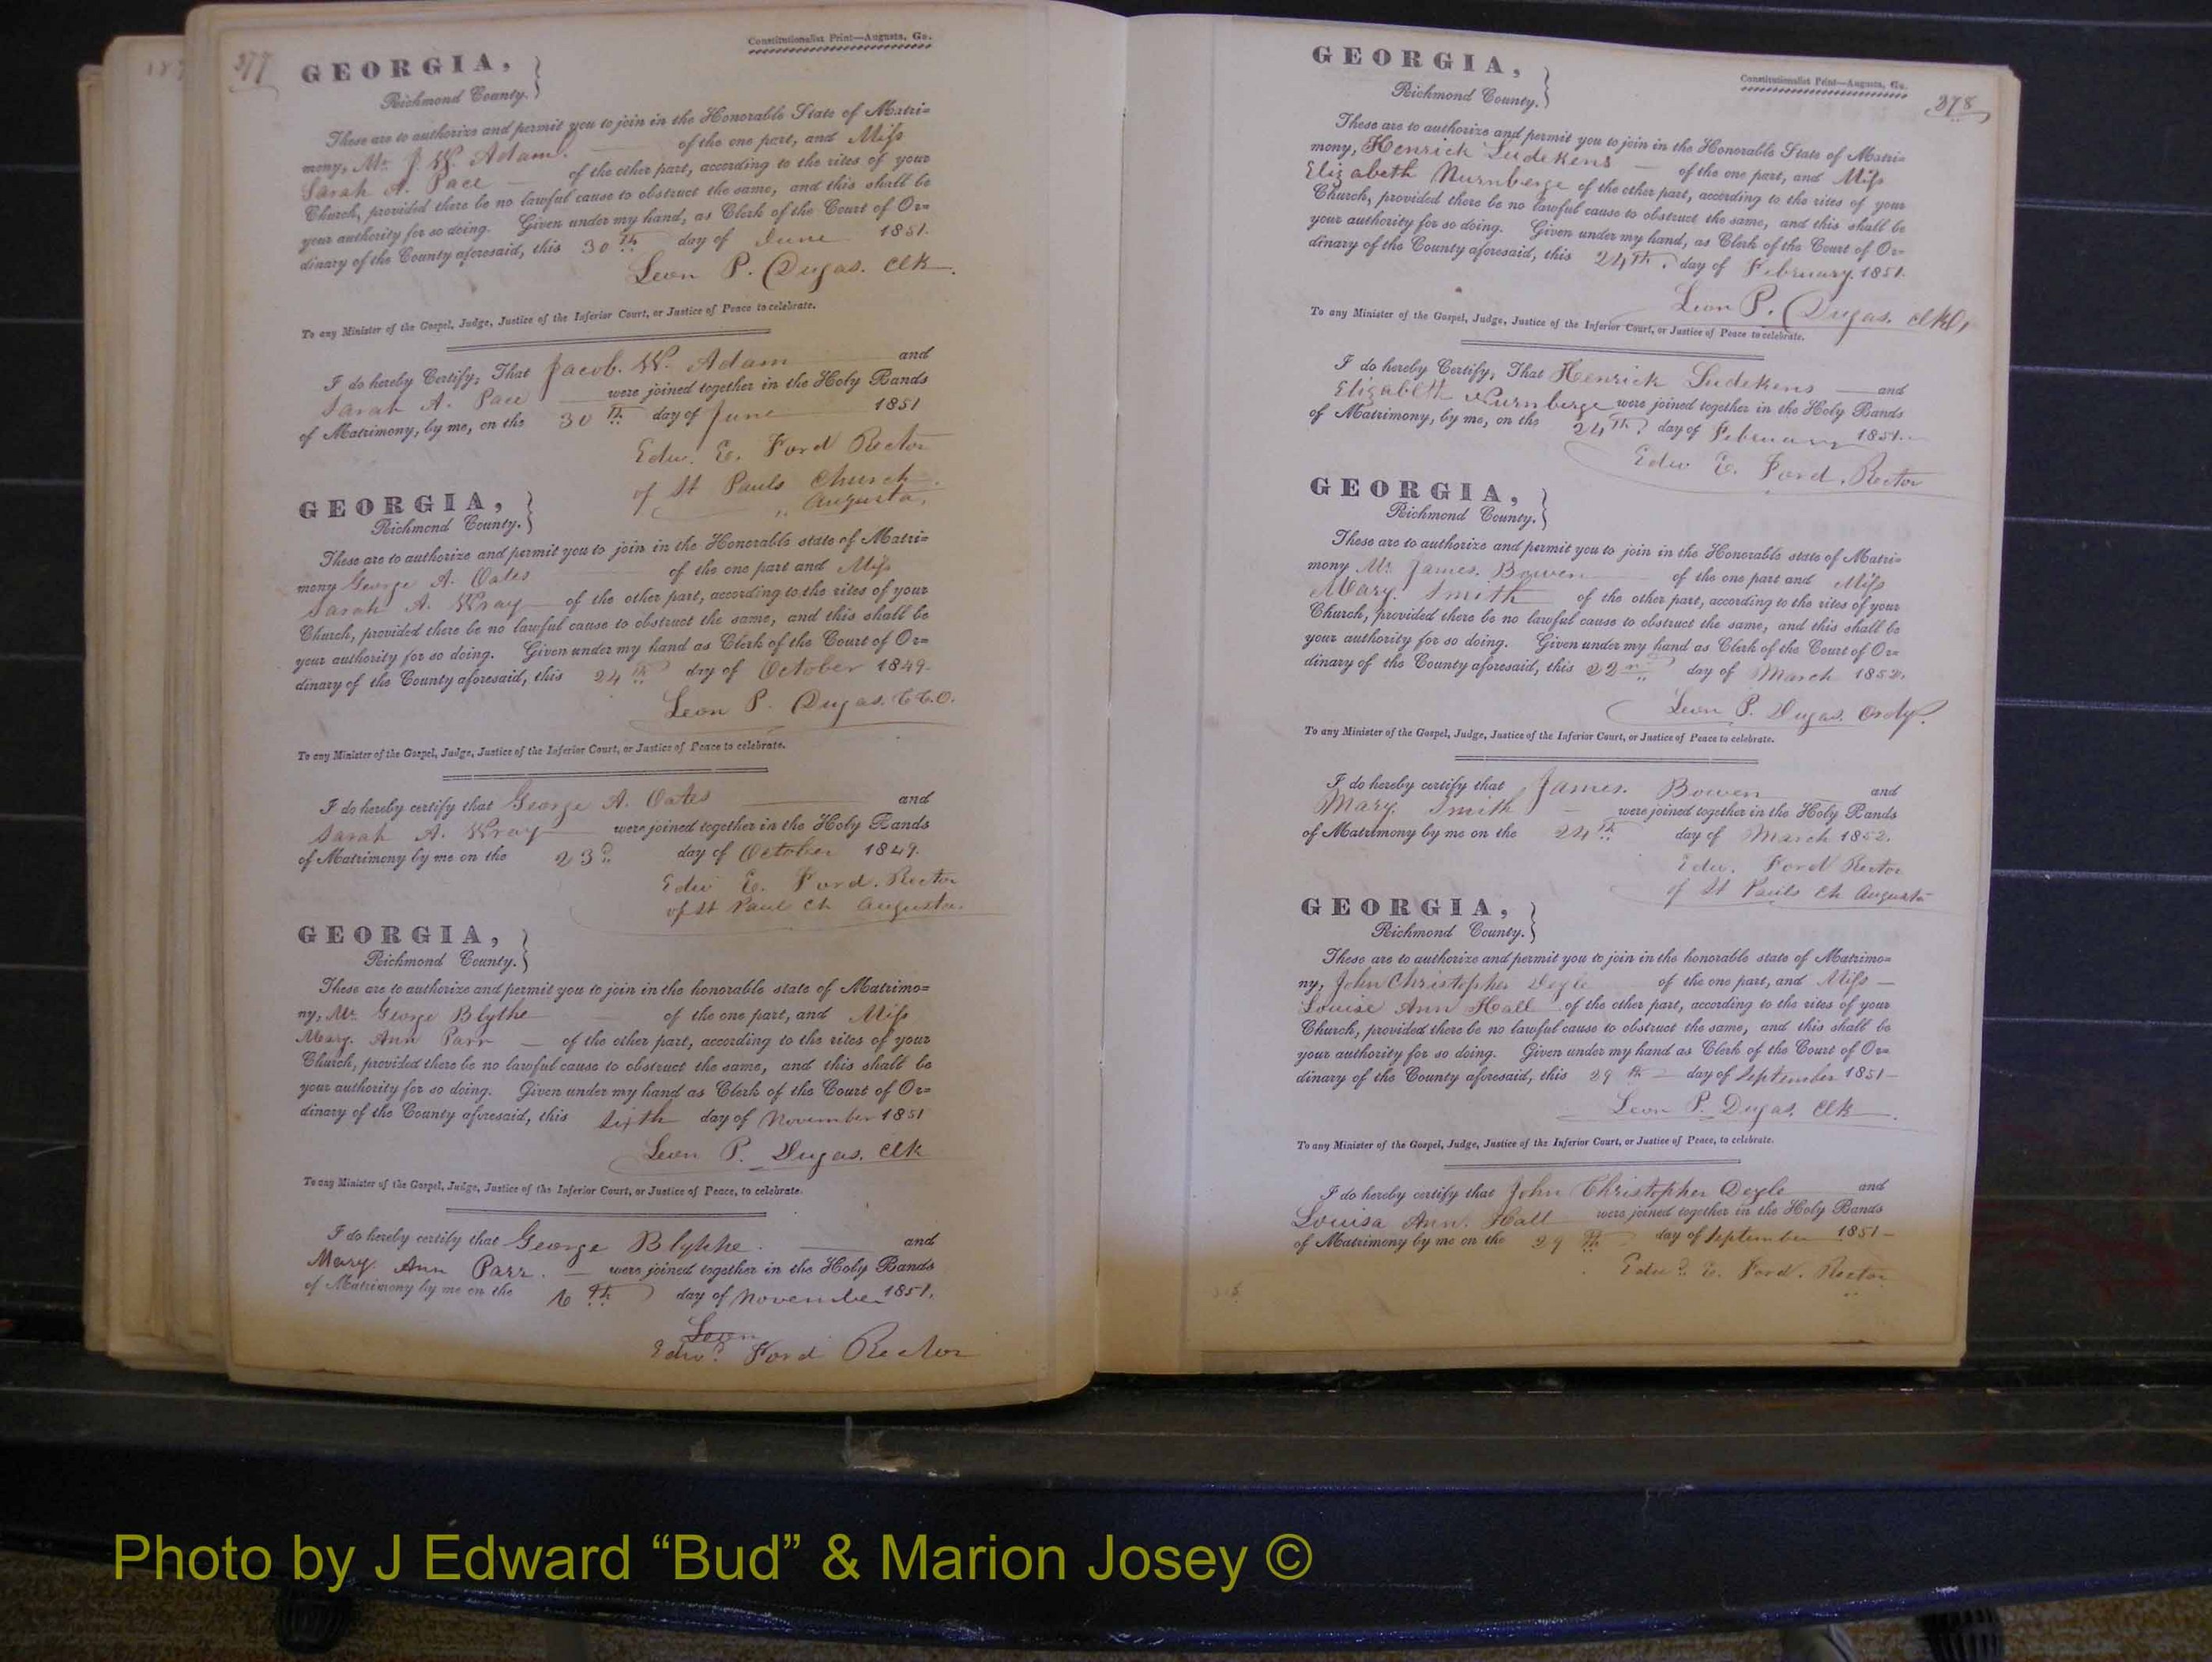 377
Constitutionalist Print—Augusta, Ga.
GEORGIA,
Richmond County.
These are to authorize and permit you to join in the Honorable State of Matri=
mony, Mr. J. W. Adam. of the one part, and Miss
Sarah A. Pace — of the other part, according to the rites of your
Church, provided there be no lawful cause to obstruct the same, and this shall be
your authority for so doing. Given under my hand, as Clerk of the Court of Or=
dinary of the County aforesaid, this 30th day of June 1851.
Leon P. Dugas. Clk
To any Minister of the Gospel, Judge, Justice of the Inferior Court, or Justice of Peace to celebrate.
I do hereby Certify, That Jacob. W. Adam and
Sarah A. Pace were joined together in the Holy Bands
of Matrimony, by me, on the 30th day of June 1851
Edw. E. Ford Rector
of St Pauls Church
Augusta,
GEORGIA,
Richmond County.
These are to authorize and permit you to join in the Honorable state of Matri=
mony George A. Oates of the one part and Miss
Sarah A. Wray — of the other part, according to the rites of your
Church, provided there be no lawful cause to obstruct the same, and this shall be
your authority for so doing. Given under my hand as Clerk of the Court of Or=
dinary of the County aforesaid, this 24th day of October 1849-
Leon P. Dugas. C.C.O.
To any Minister of the Gospel, Judge, Justice of the Inferior Court, or Justice of Peace to celebrate.
I do hereby certify that George A. Oates and
Sarah A. Wray were joined together in the Holy Bands
of Matrimony by me on the 23d day of October 1849.
Edw E. Ford. Rector
of St Paul Ch Augusta.
GEORGIA,
Richmond County.
These are to authorize and permit you to join in the honorable state of Matrimo=
ny, Mr. George Blythe of the one part, and Miss
Mary. Ann Parr — of the other part, according to the rites of your
Church, provided there be no lawful cause to obstruct the same, and this shall be
your authority for so doing. Given under my hand as Clerk of the Court of Or=
dinary of the County aforesaid, this sixth day of November 1851
Leon P. Dugas. Clk
To any Minister of the Gospel, Judge, Justice of the Inferior Court, or Justice of Peace, to celebrate.
I do hereby certify that George Blythe. and
Mary. Ann Parr. — were joined together in the Holy Bands
of Matrimony by me on the 6th day of November 1851.
Leon
Edwd. Ford Rector
GEORGIA,
Richmond County.
Constitutionalist Print—Augusta, Ga.
378
These are to authorize and permit you to join in the Honorable State of Matri=
mony, Henrick Ludekens — of the one part, and Miss
Elizabeth Nurnberge of the other part, according to the rites of your
Church, provided there be no lawful cause to obstruct the same, and this shall be
your authority for so doing. Given under my hand, as Clerk of the Court of Or=
dinary of the County aforesaid, this 24th. day of February. 1851.
Leon P. Dugas. Clk
To any Minister of the Gospel, Judge, Justice of the Inferior Court, or Justice of Peace to celebrate.
I do hereby Certify, That Henrick Ludekens — and
Elizabeth Nurnberge were joined together in the Holy Bands
of Matrimony, by me, on the 24th day of February 1851.
Edw E. Ford. Rector
GEORGIA,
Richmond County.
These are to authorize and permit you to join in the Honorable state of Matri=
mony Mr. James. Bowen of the one part and Miss
Mary. Smith of the other part, according to the rites of your
Church, provided there be no lawful cause to obstruct the same, and this shall be
your authority for so doing. Given under my hand as Clerk of the Court of Or=
dinary of the County aforesaid, this 22n day of March 1852.
Leon P. Dugas. Ordy.
To any Minister of the Gospel, Judge, Justice of the Inferior Court, or Justice of Peace to celebrate.
I do hereby certify that James. Bowen and
Mary. Smith — were joined together in the Holy Bands
of Matrimony by me on the 24th day of March 1852.
Edw. Ford Rector
of St Pauls Ch Augusta
GEORGIA,
Richmond County.
These are to authorize and permit you to join in the honorable state of Matrimo=
ny, John Christopher Deyle of the one part, and Miss —
Louise Ann Hall of the other part, according to the rites of your
Church, provided there be no lawful cause to obstruct the same, and this shall be
your authority for so doing. Given under my hand as Clerk of the Court of Or=
dinary of the County aforesaid, this 29th — day of September 1851—
Leon P. Dugas. Clk
To any Minister of the Gospel, Judge, Justice of the Inferior Court, or Justice of Peace, to celebrate.
I do hereby certify that John Christopher Deyle and
Louisa Ann. Hall were joined together in the Holy Bands
of Matrimony by me on the 29th day of September 1851—
Edwd. E. Ford. Rector
Photo by J Edward “Bud” & Marion Josey ©